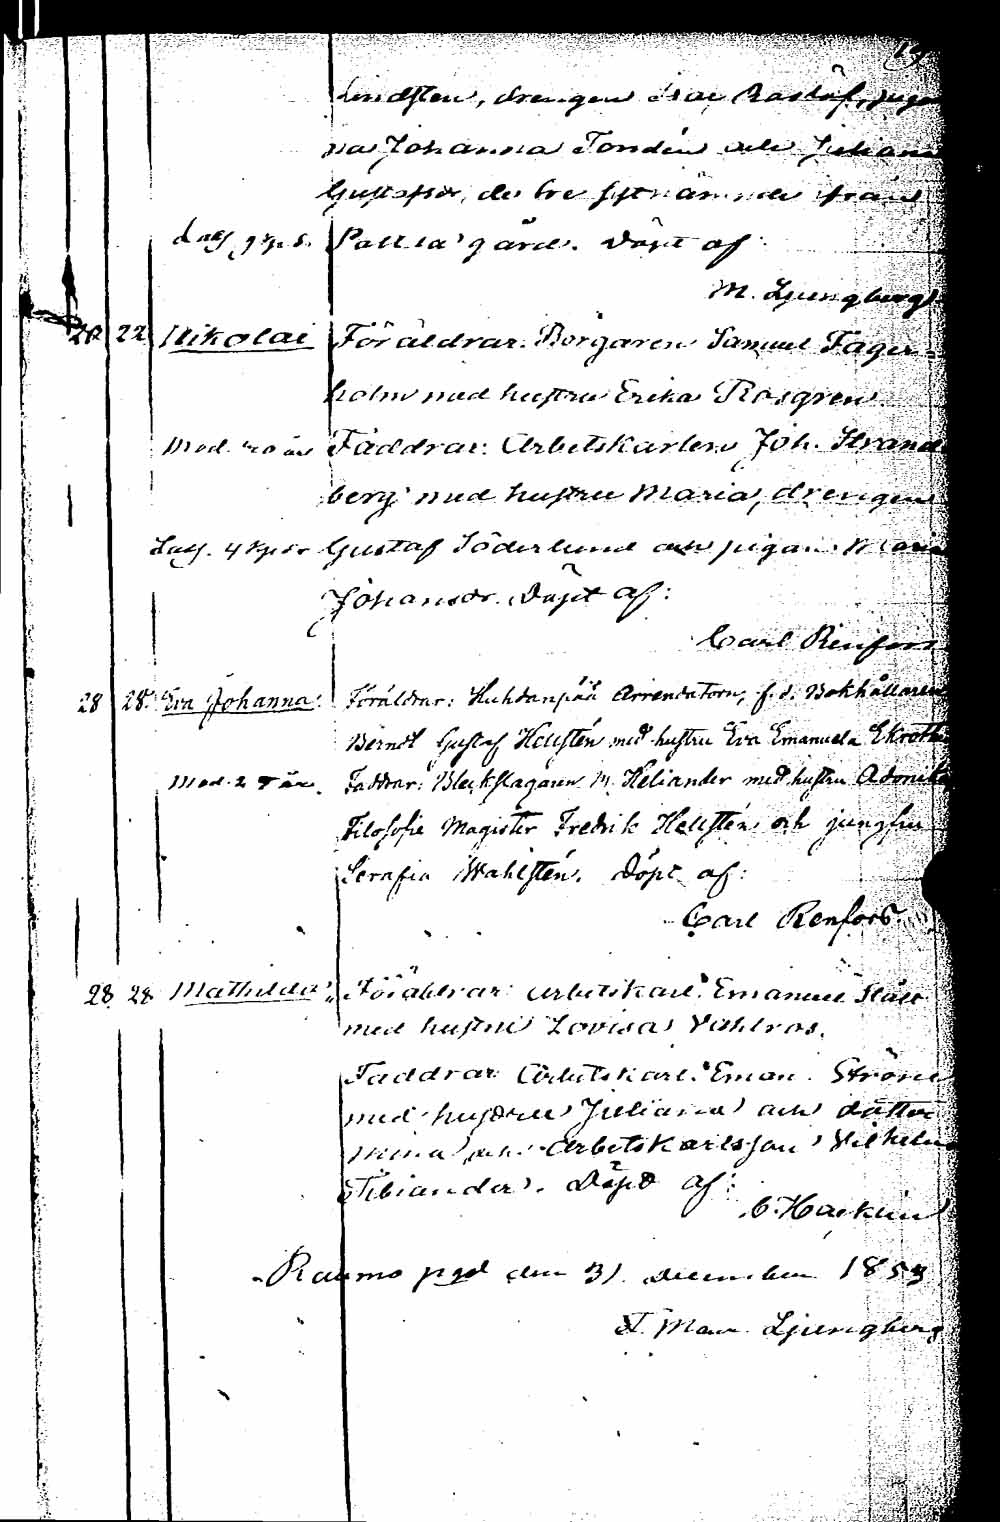 Lindsten, drengen Isac Rostöf, pigor
na Johanna Tondén och Juliana
Gustafsdr, de tre sistnämnde från
Lags. 9 kp. s. Pallia gård. Döpt af:
M. Ljungberg
20 22 Nikolai Föräldrar: Borgaren Samuel Fager=
holm med hustru Erika Rosgren
Mod. 40 år Faddrar: Arbetskarlen Joh. Strand
berg med hustru Maria, drengen
Lags. 4 kp. sr Gustaf Söderlund och pigan Maria
Johansdr. Döpt af:
Carl Renfors
28 28. Eva Johanna: Föräldrar: Huhdanpää Arrendatorn, f. d. Bokhållaren
Berndt Gustaf Hellstén med hustru Eva Emanuela Ekroth
Mod. 2 år. Faddrar: Bleckslagaren M. Heliander med hustru Adonika
Filosofie Magister Fredrik Hellstén och jungfru
Serafia Wahlstén. Döpt af:
Carl Renfors.
28 28 Mathilda: Föräldrar: Arbetskarl. Emanuel
med hustru Lovisa Vahlros.
Faddrar: Arbetskarl. Eman. Ström
med hustru Juliana och dotter
Mina, och Arbetskarlsson Vilhelm
Fibiander. Döpt af:
C. Hacklin
Raumo pgd den 31 December 1853
F. Maur. Ljungberg